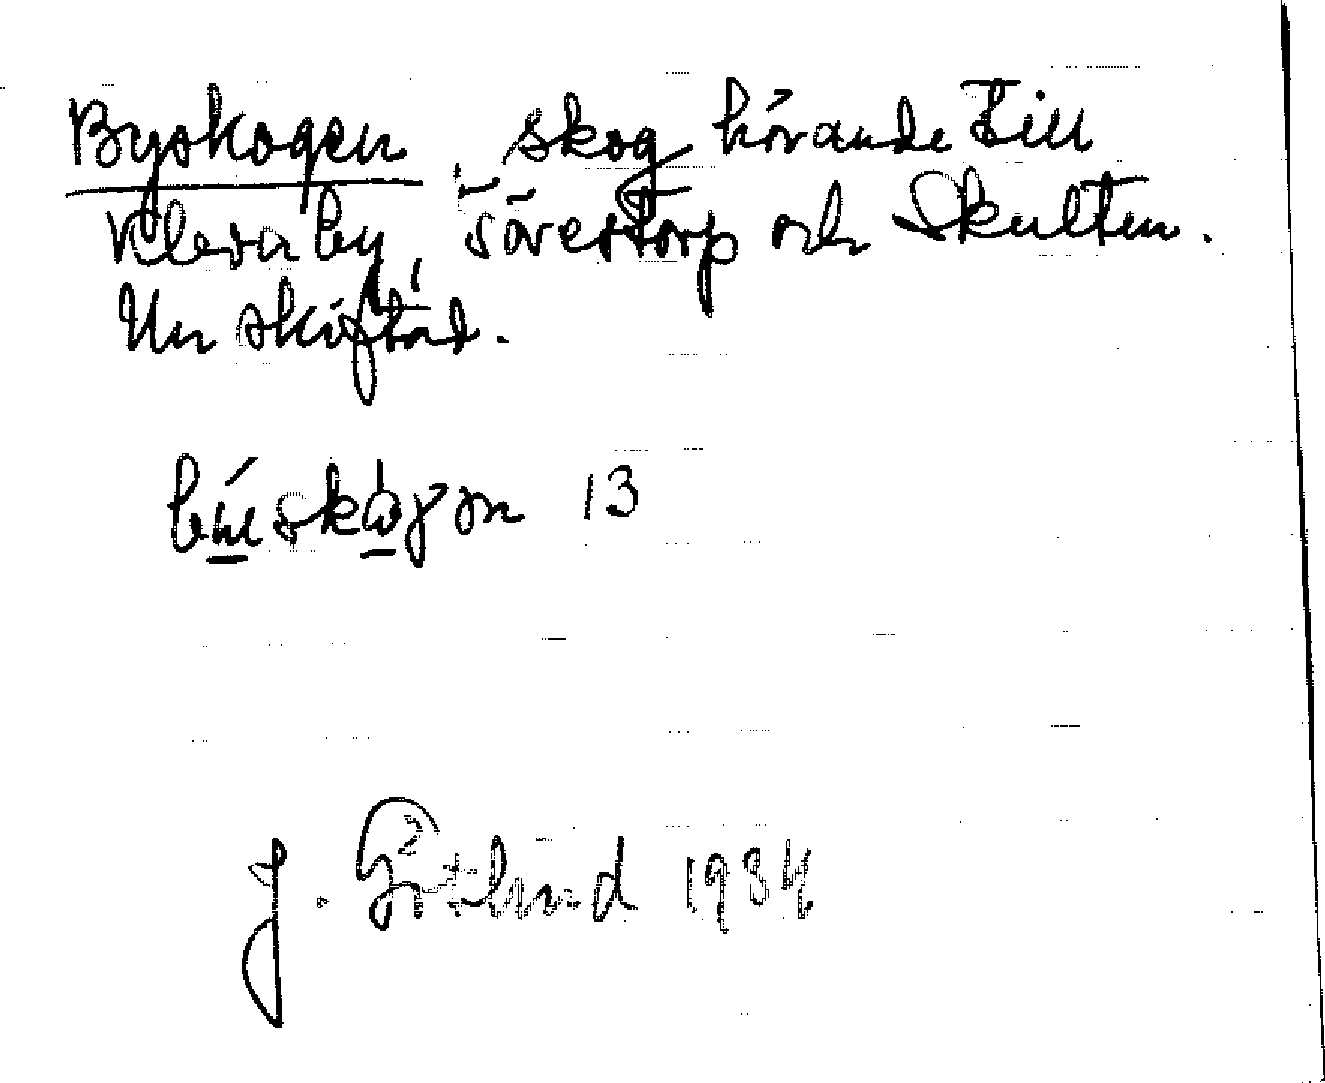 Byskogen, skog hörande till
Klevaby, Sörestorp och Skulten.
Un skiftad.
13
J. Götlind 1934